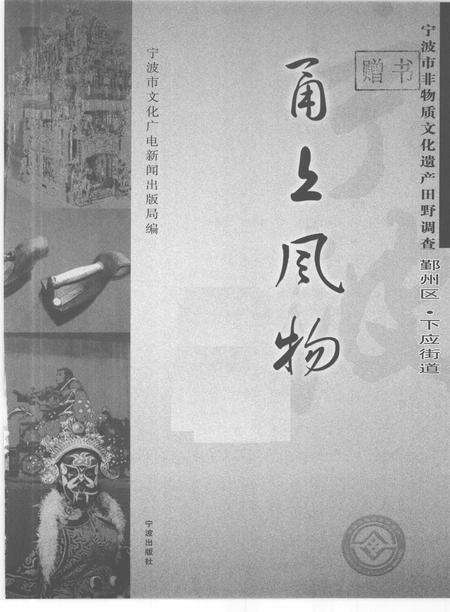 宁波市非物质文化遗产田野调查
鄞州区·下应街道
赠书
甬上风物
宁波市文化广电新闻出版局编
宁波出版社